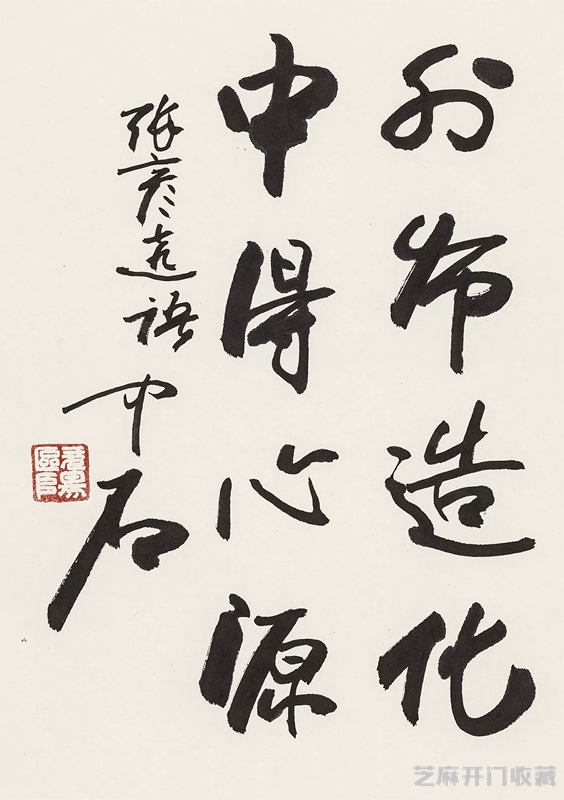 外师造化
中得心源
张彦遠語
中石
芝麻开门收藏